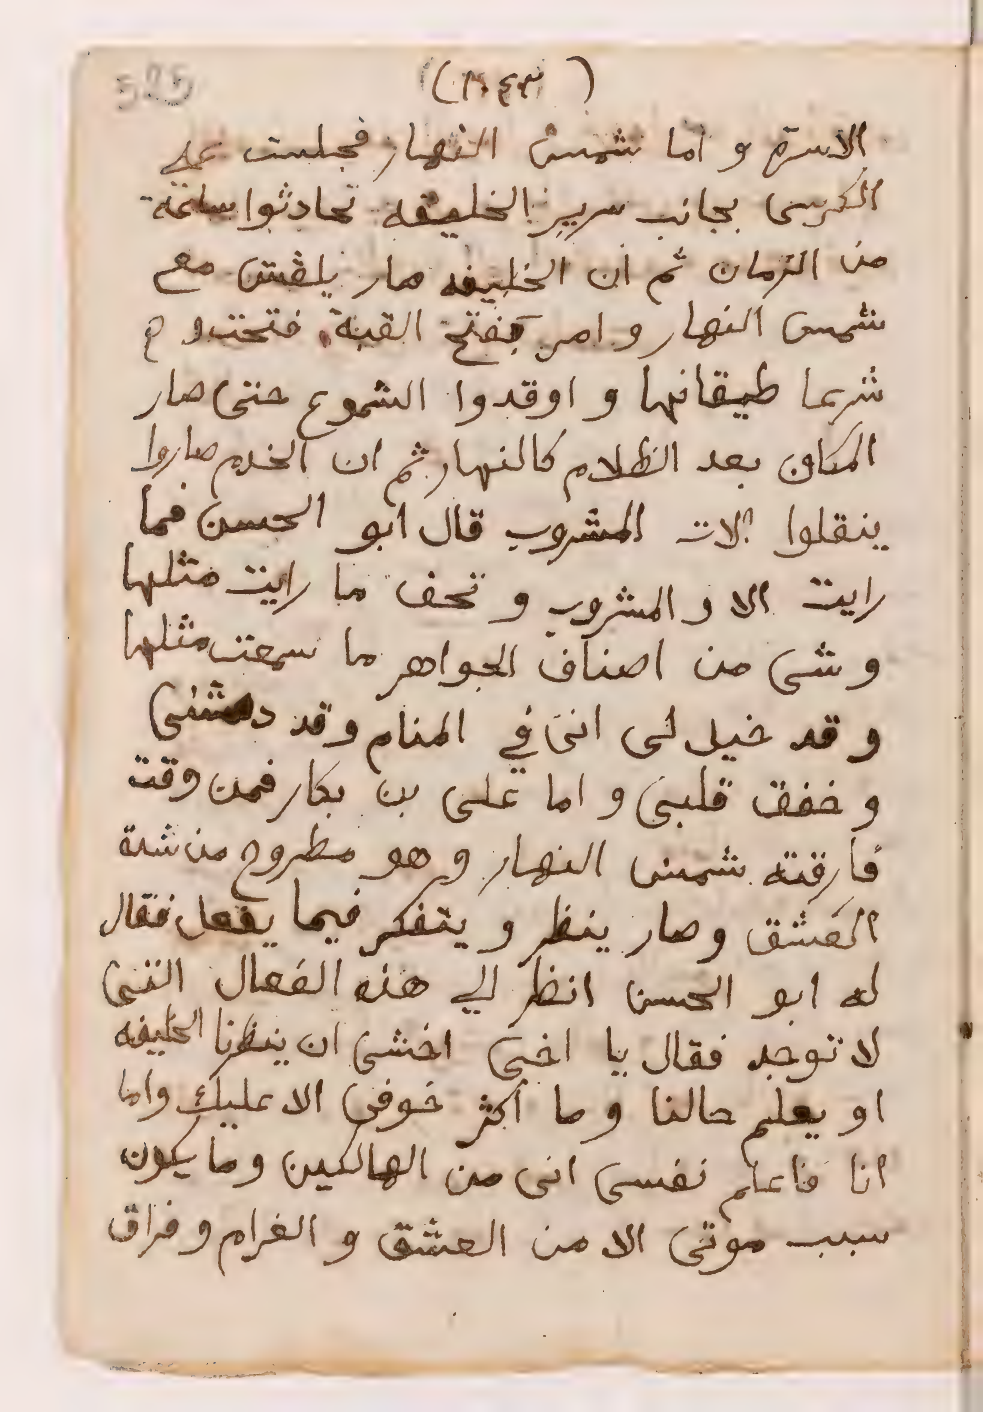 525
الاسرة و اما شمس النهار فجلست على
الكرسى بجانب سرير الخليفه تحادثوا ساعة
من الزمان ثم ان الخليفه صار يلقش مع
شمس النهار و امر بفتح القبة فتحت و
شرعا طيقانها و اوقدوا الشموع حتى صار
المكان بعد الظلام كالنهار ثم ان الخدم صاروا
ينقلوا الات المشروب قال ابو الحسن فما
رايت الا و المشروب و تحف ما رايت مثلها
و شى من اصناف الجواهر ما سمعت مثلها
و قد خيل لى اننى في المنام وقد دهشنى
و خفق قلبى و اما على بن بكار فمن وقت
فارقته شمس النهار و هو مطروح من شدة
العشق وصار ينظر و يتفكر فيما يفعل فقال
له ابو الحسن انظر الي هذه الفعال التى
لا توجد فقال يا اخى اخشى ان ينظرنا الخليفه
او يعلم حالنا وما اكثر خوفى الا عليك واما
انا فاعلم نفسى انى من الهالكين وما يكون
سبب موتى الا من العشق و الغرام و فراق